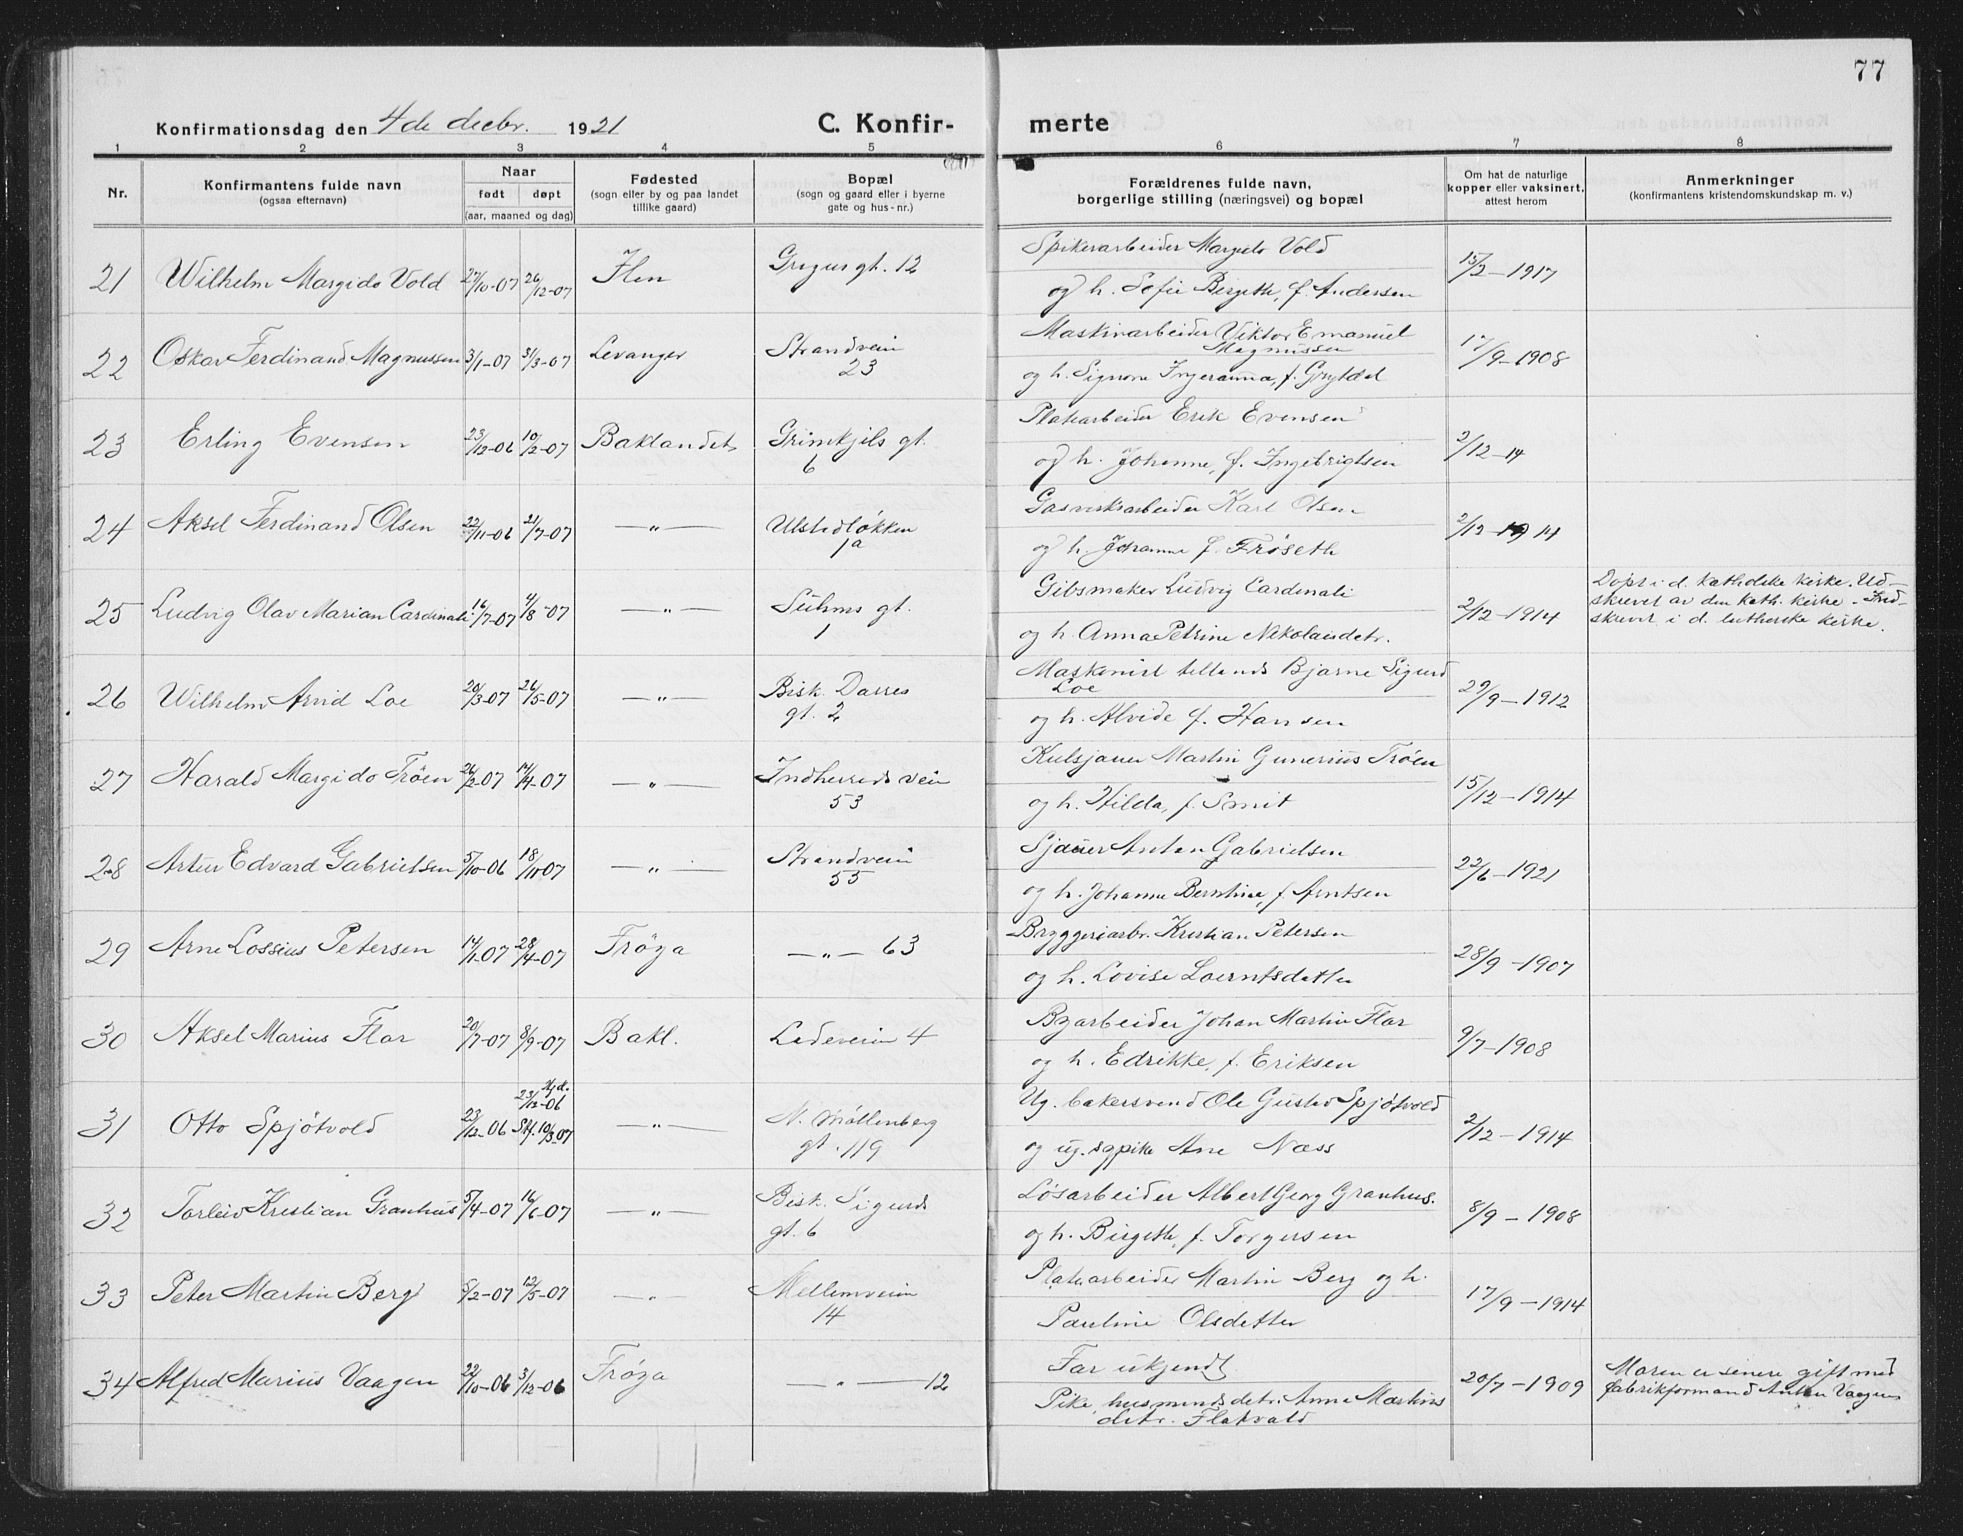 77
Konfirmationsdag den 4de decbr. 1921 C. Konfir- merte
1 2 3 4 5 6 7 8
Nr. Konfirmantens fulde navn (ogsaa efternavn) Naar født døpt (aar, maaned og dag) Fødested (sogn eller by og paa landet tillike gaard) Bopæl (sogn og gaard eller i byerne gate og hus-nr.) Forældrenes fulde navn, borgerlige stilling (næringsvei) og bopæl Om hat de naturlige kopper eller vaksinert, attest herom Anmerkninger (konfirmantens kristendomskundskap m. v.)
21 Wilhelm Margido Vold 27/10-07 26/12-07 Ilen Gregus gt. 12 Spikerarbeider Margido Vold
og h. Sofie Birgette, f. Andersen 15/2-1917
22 Oskar Ferdinand Magnussen 3/1-07 31/3-07 Levanger Strandveien 23 Maskinarbeider Viktor Emanuel Magnussen
og h. Signora Ingeranna, f. 17/9-1908
23 Erling Evensen 23/12-06 10/2-07 Baklandet Grimkjils gt. 6 Platearbeider Erik Evensen
og h. Johanne, f. Ingebrigtsen 2/12-14
24 Aksel Ferdinand Olsen 22/11-06 21/7-07 —"— Ulstadløkken 1a Gasverksarbeider Karl Olsen
og h. Johanna f. Frøseth 2/12-1914
25 Ludvig Olav Marian Cardinali 16/7-07 4/8-07 —"— Suhms gt. 1 Gibsmaker Ludvig Cardinali
og h. Anna Petrine Nikolaisdetr. 2/12-1914 Døpt i d. katholske kirke. Ud-
skrevet av den kath. kirke. Ind-
skrevet i d. lutherske kirke.
26 Wilhelm Arnd Loe 20/3-07 26/5-07 —"— Bisk. Darres gt. 2 Maskinist tillands Bjarne Sigurd Loe
og h. Alvide f. Hansen 29/9-1912
27 Harald Margido Trøen 26/2-07 14/4-07 —"— Indherreds veien 53 Kulsjauer Martin Gunerius Trøen
og h. Hilda, f. Smit 15/12-1914
28 Artur Edvard Gabrielsen 5/10-06 18/11-07 —"— Strandveien 55 Sjauer Anton Gabrielsen
og h. Johanna Berntine, f. Arntsen 22/6-1921
29 Arne Lossius Petersen 14/1-07 28/4-07 Frøya —"— 63 Bryggeriarbr. Kristian Petersen
og h. Lovise Loerntsdatter 28/9-1907
30 Aksel Marius Flor 20/7-07 8/9-07 Bakl. Ladeveien 4 Byarbeider Johan Martin Flor
og h. Edrikke, f. Eriksen 9/7-1908
31 Otto Spjøtvold 23/12-06 Hjd. 23/12-06 Stf. 10/3-07 —"— N. Møllenberg gt. 119 Ug. bakersvend Ole Gustav Spjøtvold
og ug. sypike Ane Næss 2/12-1914
32 Torleiv Kristian Granhus 5/4-07 16/6-07 —"— Bisk. Sigurds gt. 6 Løsarbeider Albert Georg Granhus.
og h. Birgette, f. Torgersen 8/9-1908
33 Peter Martin Berg 5/2-07 12/5-07 —"— Mellemveien 14 Platearbeider Martin Berg og h.
Pauline Olsdatter 17/9-1914
34 Alfred Marius Vaagen 22/10-06 3/12-06 Frøya —"— 12 Far ukjendt.
Pike, husmandsdetr. Anna Martins detr. Flatvald 20/7-1909 Moren er senere gift med
fabrikformand Anton Vaagen